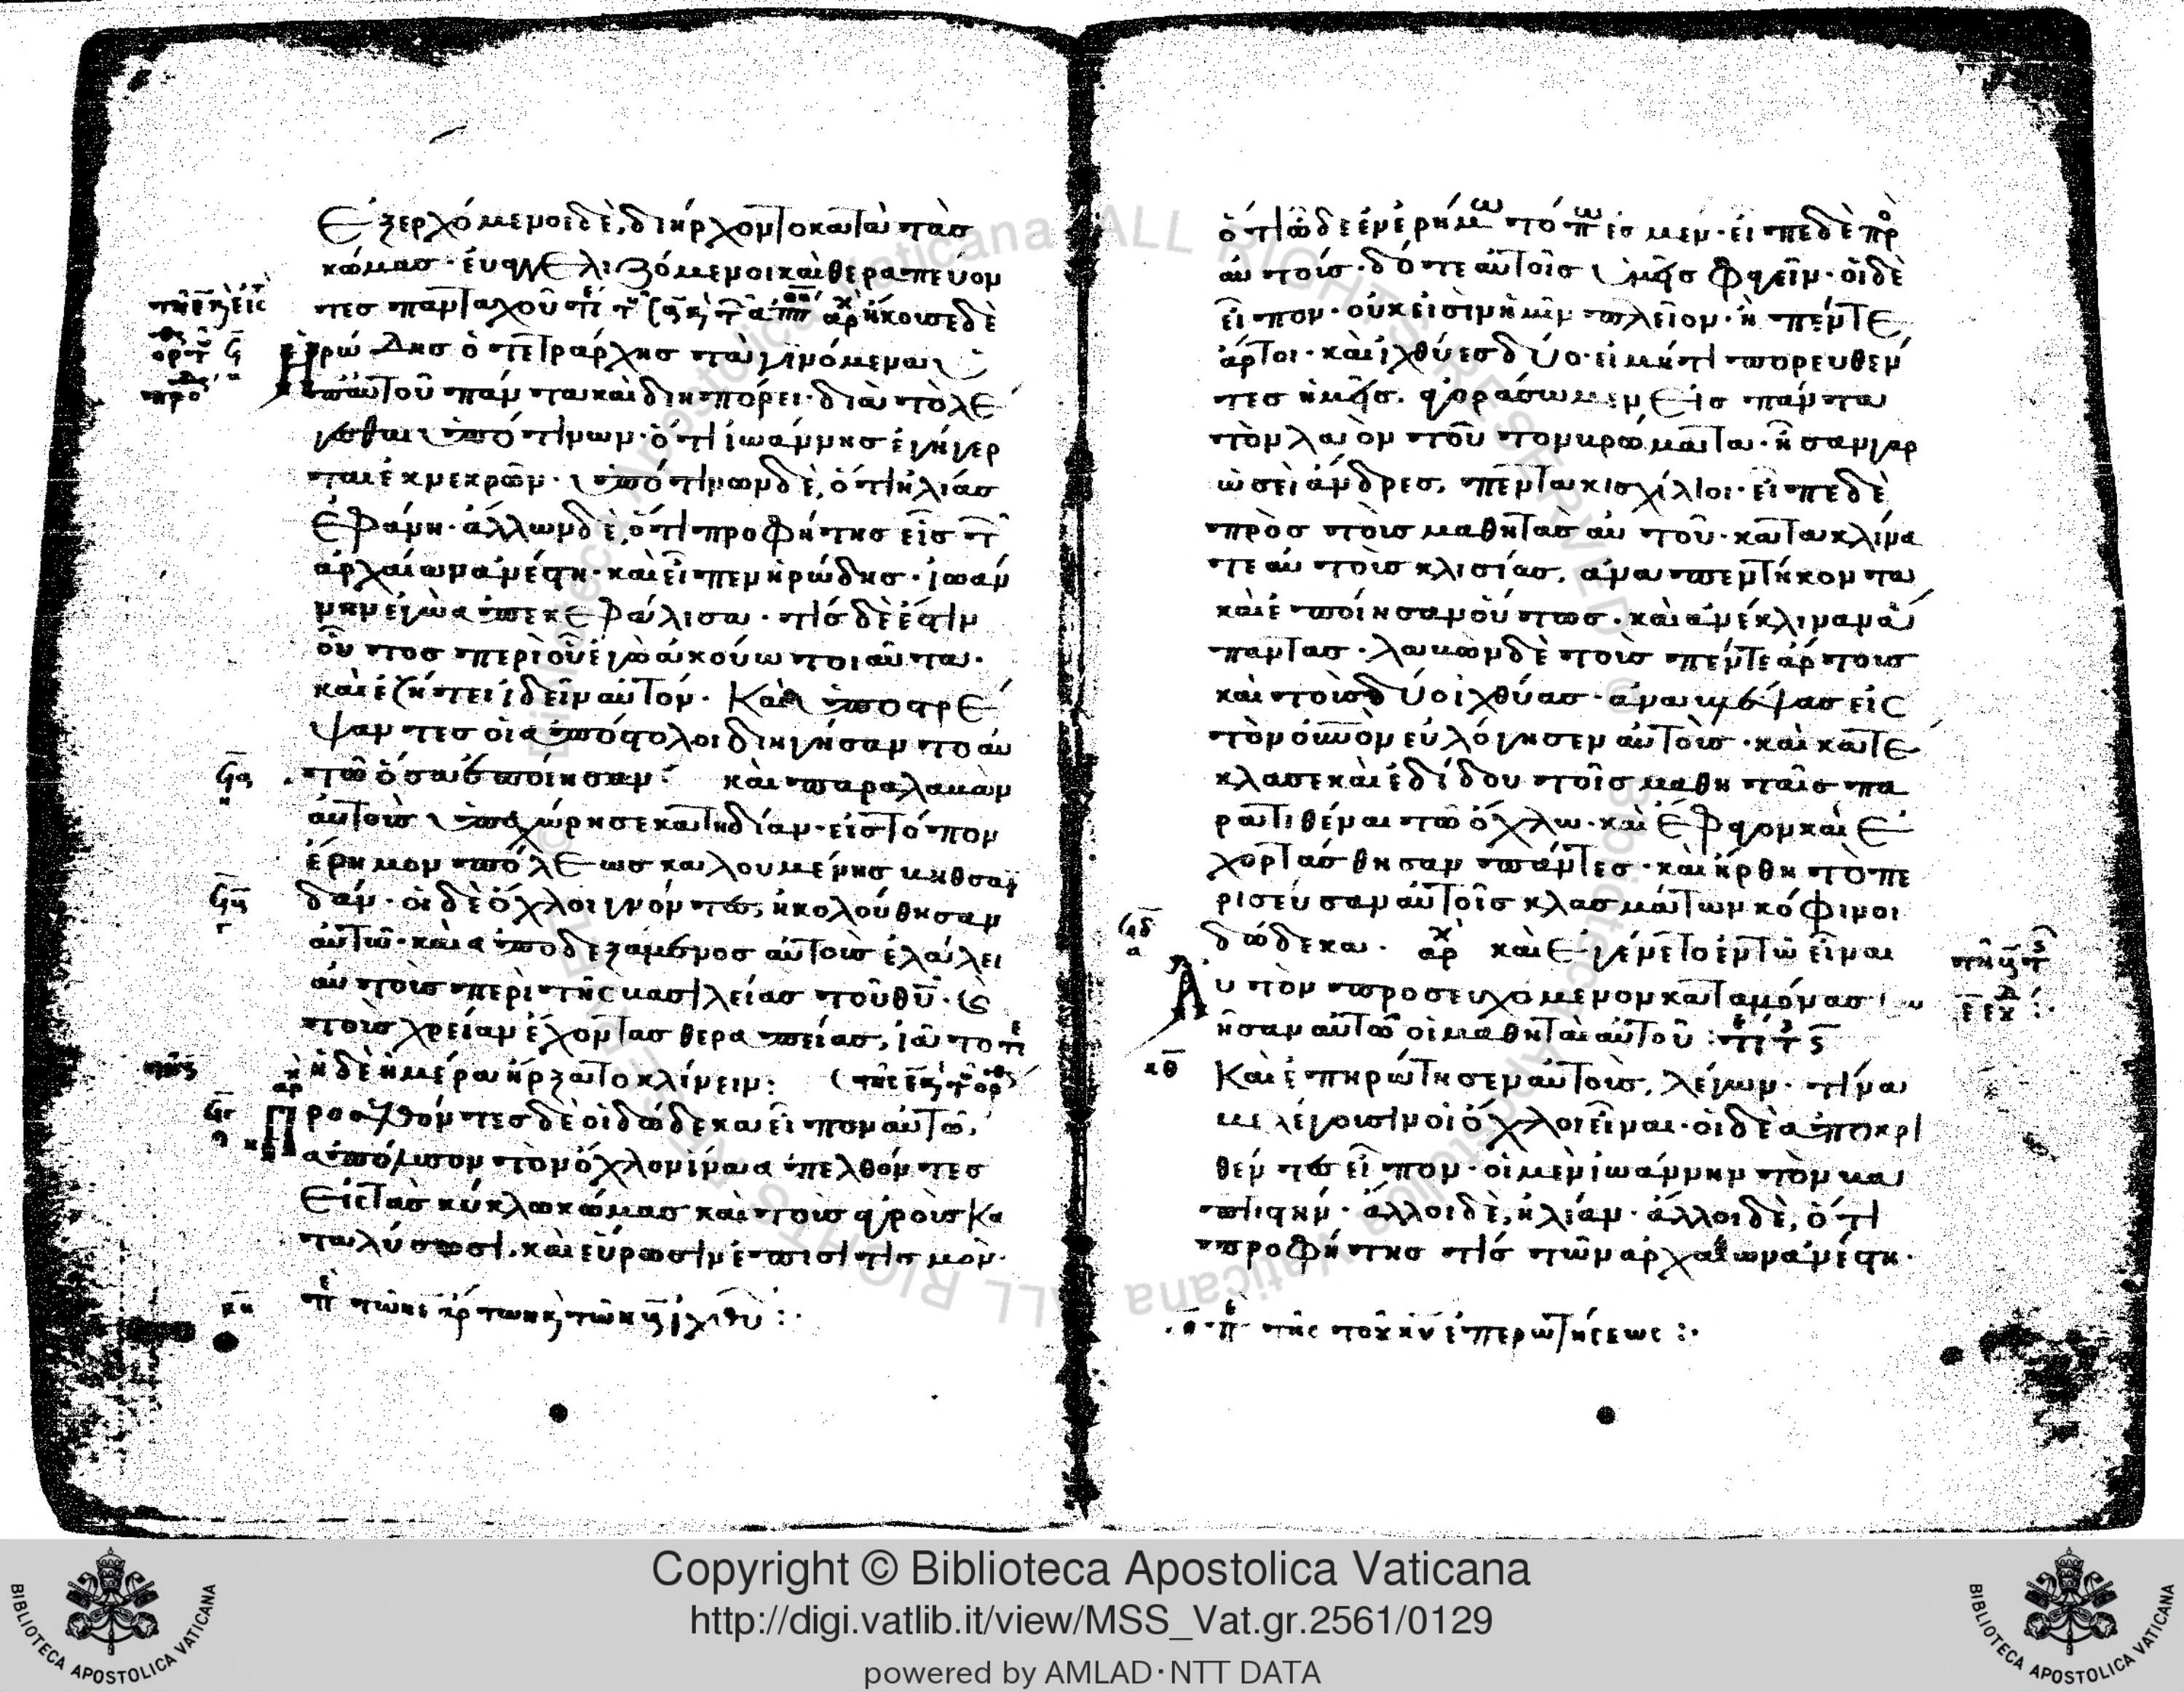 Ἐξερχόμενοι δὲ, διήρχοντο κατὰ τὰσ
κώμασ· ἐυαγγελιζόμενοι καὶ θεραπεύον
τεσ πανταχοῦ ἤκουσε δὲ
Ἡρώδησ ὁ τετράρχησ τὰ γινόμενα
ὑπ αὐτοῦ πάντα καὶ διηπόρει· διὰ τὸ λέ
γεσθαι ὑπό τινων· ὅτι ἰωάννησ ἐγήγερ
ται ἐκ νεκρῶν· ὑπό τινων δὲ, ὅτι ἠλίασ
ἐφάνη· ἄλλων δὲ, ὅτι προφήτησ εἷσ τ
ἀρχαίων ἀνέστη· καὶ εἶπεν ἡρώδησ· ἰωάν
νην ἐγὼ ἀπεκεφάλισα· τίσ δὲ ἐστιν
οὗτοσ περὶ οὗ ἐγὼ ἀκούω τοιαῦτα·
καὶ ἐζήτει ἰδεῖν αὐτόν· Καὶ ὑποστρέ
ψαντεσ οἱ ἀπόστολοι διηγήσαντο αὐ
τῶ ὅσα ἐποίησαν· καὶ παραλαβὼν
αὐτοὺσ ὑπεχώρησε κατ ἰδίαν· εἰσ τόπον
ἔρημον πόλεωσ καλουμένησ βηθσαϊ
δάν· οἱ δὲ ὄχλοι γνόντεσ, ἠκολούθησαν
αὐτῶ· καὶ ἀποδεξάμενοσ αὐτοὺσ ἐλάλει
αὐτοῖσ περὶ τῆς βασιλείασ τοῦ θῦ· καὶ
τοὺσ χρείαν ἔχοντασ θεραπείασ, ἰᾶτο
ἡ δὲ ἡμέρα ἤρξατο κλίνειν:
Προσελθόντεσ δὲ οἱ δώδεκα εἶπον αὐτῶ,
ἀπόλυσον τὸν ὄχλον ἵνα ἀπελθόντεσ
εἰς τὰσ κύκλω κώμασ καὶ τοὺσ ἀγροὺσ κα
ταλύσωσι, καὶ εὕρωσιν ἐπισιτισμόν·
κη πε τῶν ε ἄρτων κ τῶν β ἰχθύ:·
ὅτι ὧδε ἐν ἐρήμω τόπω ἐσμέν· εἶπε δὲ πρ
αὐτούσ· δότε αὐτοῖσ ὑμεῖσ φαγεῖν· οἱ δὲ
εἶπον· οὐκ εἰσὶν ἡμῖν πλεῖον· ἢ πέντε
ἄρτοι· καὶ ἰχθύεσ δύο· εἰ μήτι πορευθέν
τεσ ἡμεῖσ, ἀγοράσωμεν εἰσ πάντα
τὸν λαὸν τοῦτον βρώματα· ἦσαν γαρ
ὡσεὶ ἄνδρεσ, πεντακισχίλιοι· εἶπε δὲ
πρὸσ τοὺσ μαθητὰσ αὐτοῦ· κατακλίνα
τε αὐτοὺσ κλισίασ, ἀνα πεντήκοντα
καὶ ἐποίησαν οὕτωσ· καὶ ἀνέκλιναν ἅ
παντασ· λαβὼν δὲ τοὺσ πέντε ἄρτουσ
καὶ τοὺσ δύο ἰχθύασ· ἀναβλέψασ εἰς
τὸν οὐνὸν εὐλόγησεν αὐτοὺσ· καὶ κατέ
κλασε καὶ ἐδίδου τοῖσ μαθηταῖσ πα
ρατιθέναι τῶ ὄχλω· καὶ ἔφαγον καὶ ἐ
χορτάσθησαν πάντεσ· καὶ ἤρθη τὸ πε
ρισεύσαν αὐτοῖσ κλασμάτων κόφινοι
δώδεκα· καὶ ἐγένετο ἐν τῶ εἶναι
Αὐτὸν προσευχόμενον καταμόνασ
ἦσαν αὐτῶ οἱ μαθηταὶ αὐτοῦ
Καὶ ἐπηρώτησεν αὐτοὺσ, λέγων· τίνα
με λέγουσιν οἱ ὄχλοι εἶναι· οἱ δὲ ἀποκρι
θέντεσ εἶπον· οἱ μὲν ἰωάννην τὸν βα
πτιστήν· ἄλλοι δὲ, ἠλίαν· ἄλλοι δὲ, ὅτι
προφήτησ τίσ τῶν ἀρχαίων ἀνέστη·
πε τῆς τοῦ κυ ἐπερωτήσεως:·
Copyright © Biblioteca Apostolica Vaticana
http://digi.vatlib.it/view/MSS_Vat.gr.2561/0129
powered by AMLAD·NTT DATA
BIBLIOTECA APOSTOLICA VATICANA
BIBLIOTECA APOSTOLICA VATICANA